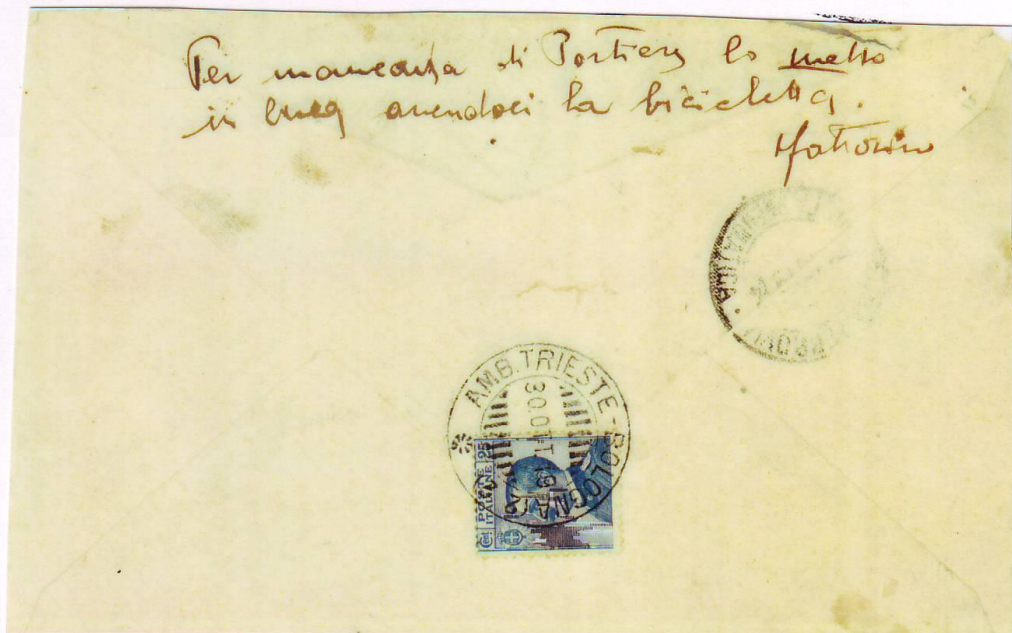 Per mancanza di Portiere lo metto
in buca avendoci la bicicletta.
Il fattorino
AMB. TRIESTE - BOLOGNA
30. OTT. 19
POSTE
ITALIANE
25
Cent